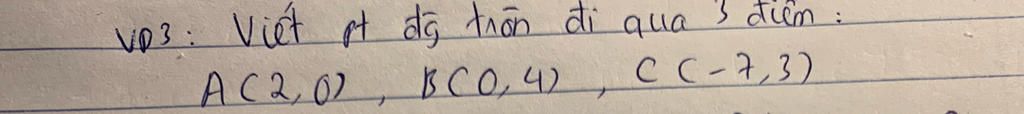 VD3: Viết pt đg tròn đi qua 3 điểm:
A(2,0), B(0,4), C(-7,3)